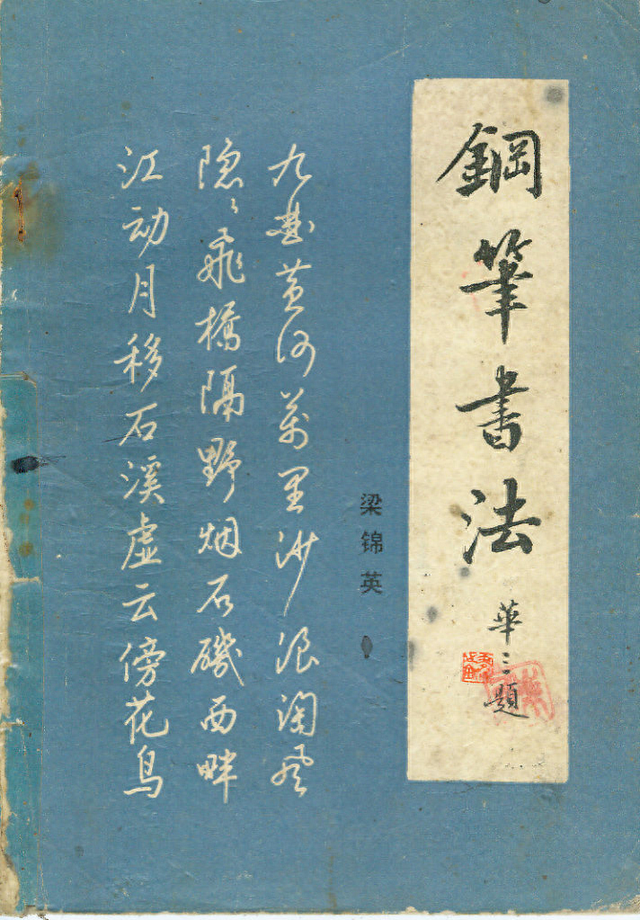 鋼筆書法
華三題
梁锦英
九曲黄河萬里沙浪淘风
隐〻飛橋隔野烟石磯西畔
江动月移石溪虚云傍花鸟